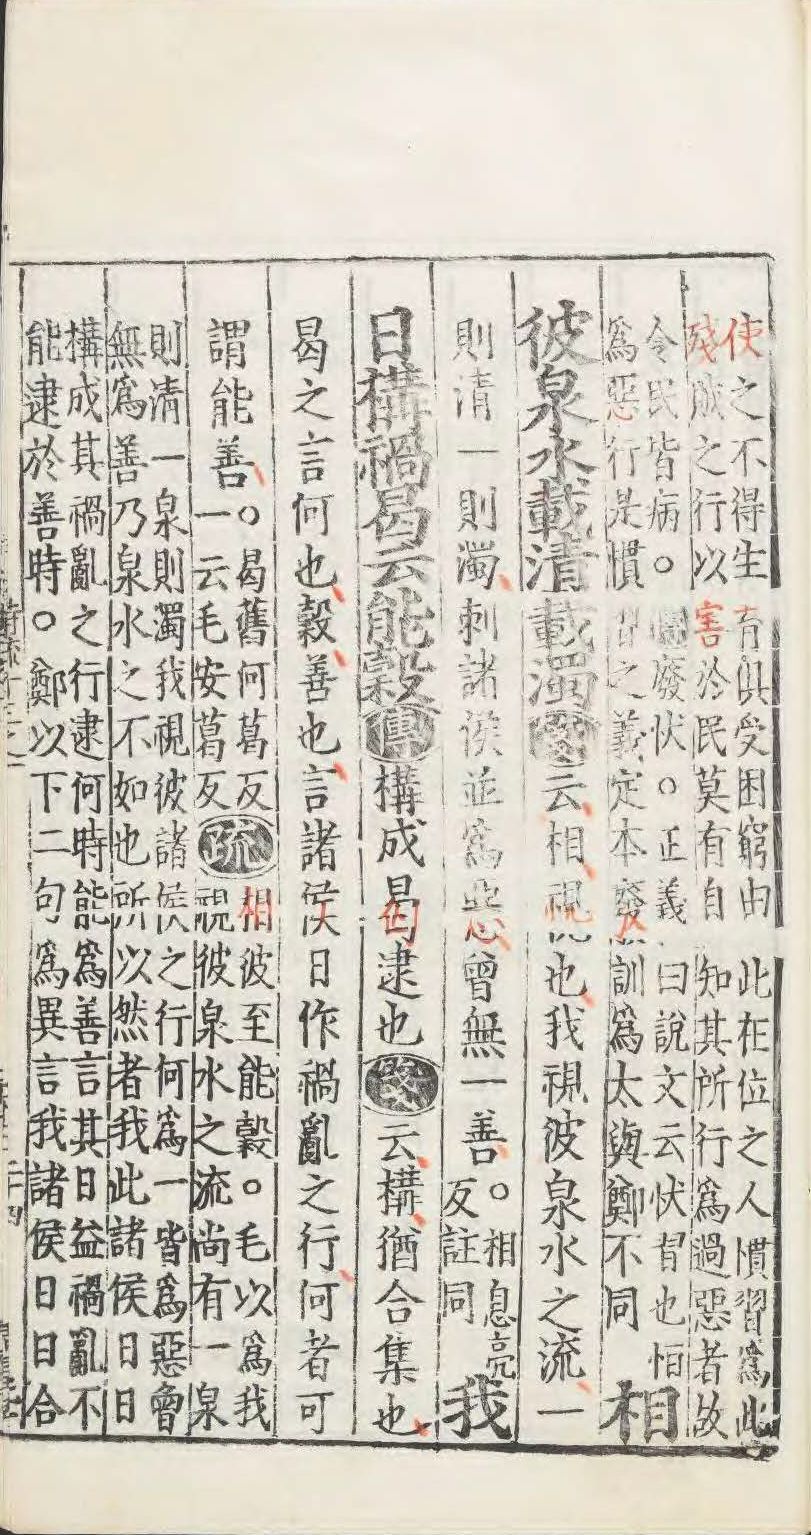 使之不得生育俱受困窮由此在位之人慣習爲此
殘賊之行以害於民莫有自知其所行爲過惡者故
令民皆病○廢伏○正義曰說文云伏習也恒
爲惡行是慣習之義定本廢訓爲太與鄭不同
相
彼泉水載清載濁箋云相視也我視彼泉水之流一
則清一則濁刺諸侯並爲惡曾無一善○相息亮
反註同
我
日構禍曷云能穀傳構成曷逮也箋云構猶合集也
曷之言何也穀善也言諸侯日作禍亂之行何者可
謂能善○曷舊何葛反
一云毛安葛反
疏
相彼至能穀○毛以爲我
視彼泉水之流尚有一泉
則清一泉則濁我視彼諸侯之行何爲一皆爲惡曾
無爲善乃泉水之不如也所以然者我此諸侯日日
構成其禍亂之行逮何時能爲善言其日益禍亂不
能逮於善時○鄭以下二句爲異言我諸侯日日合